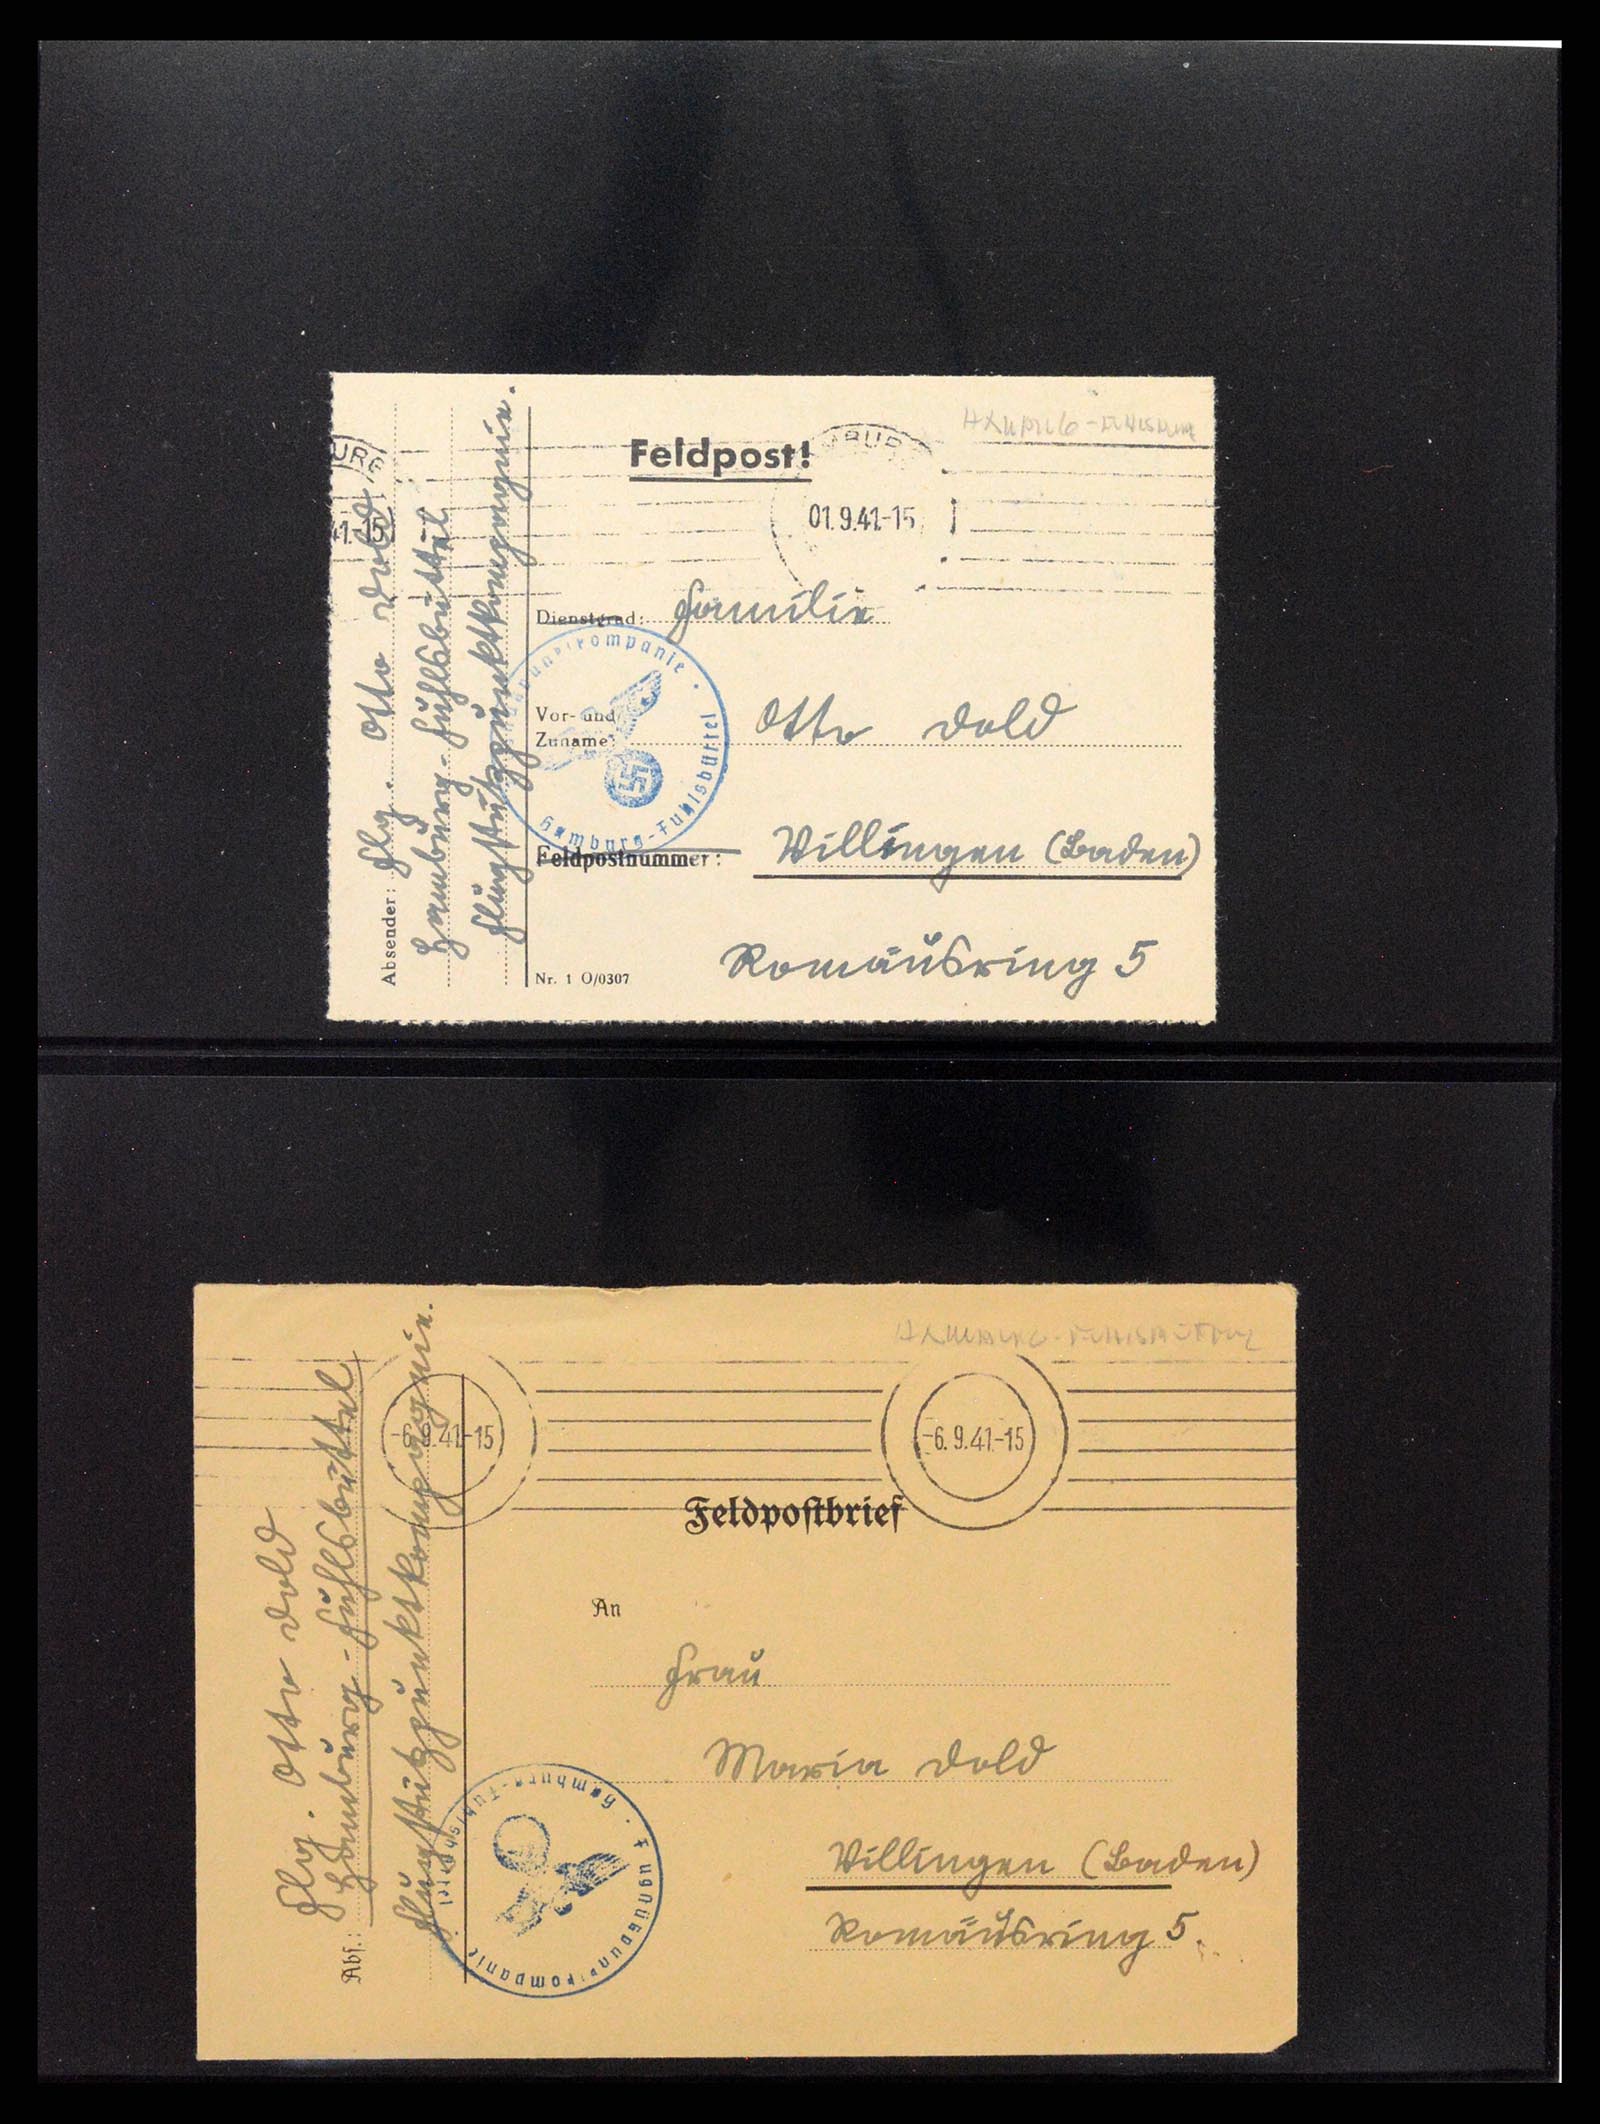 HAMBURG-FUHLSBÜTTEL
Feldpost!
BURG
MBURG
41.-15
01.9.41-15
Absender: Flg. Otto Dold
Hamburg-Fuhlsbüttel
Flugstützpunktkompagnie.
Dienstgrad: Familie
Vor- und
Zuname: Otto Dold
Feldpostnummer: Villingen (Baden)
Romäusring 5
Nr. 1 O/0307
kompanie · Hamburg-Fuhlsbüttel
HAMBURG-FUHLSBÜTTEL
41-15
-6.9.41-15
Feldpostbrief
An
Frau
Maria Dold
Villingen (Baden)
Romäusring 5.
Abs.: Flg. Otto Dold
Hamburg-Fuhlsbüttel
Flugstützpunktkompagnie.
Hamburg-Fuhlsbüttel · kompanie